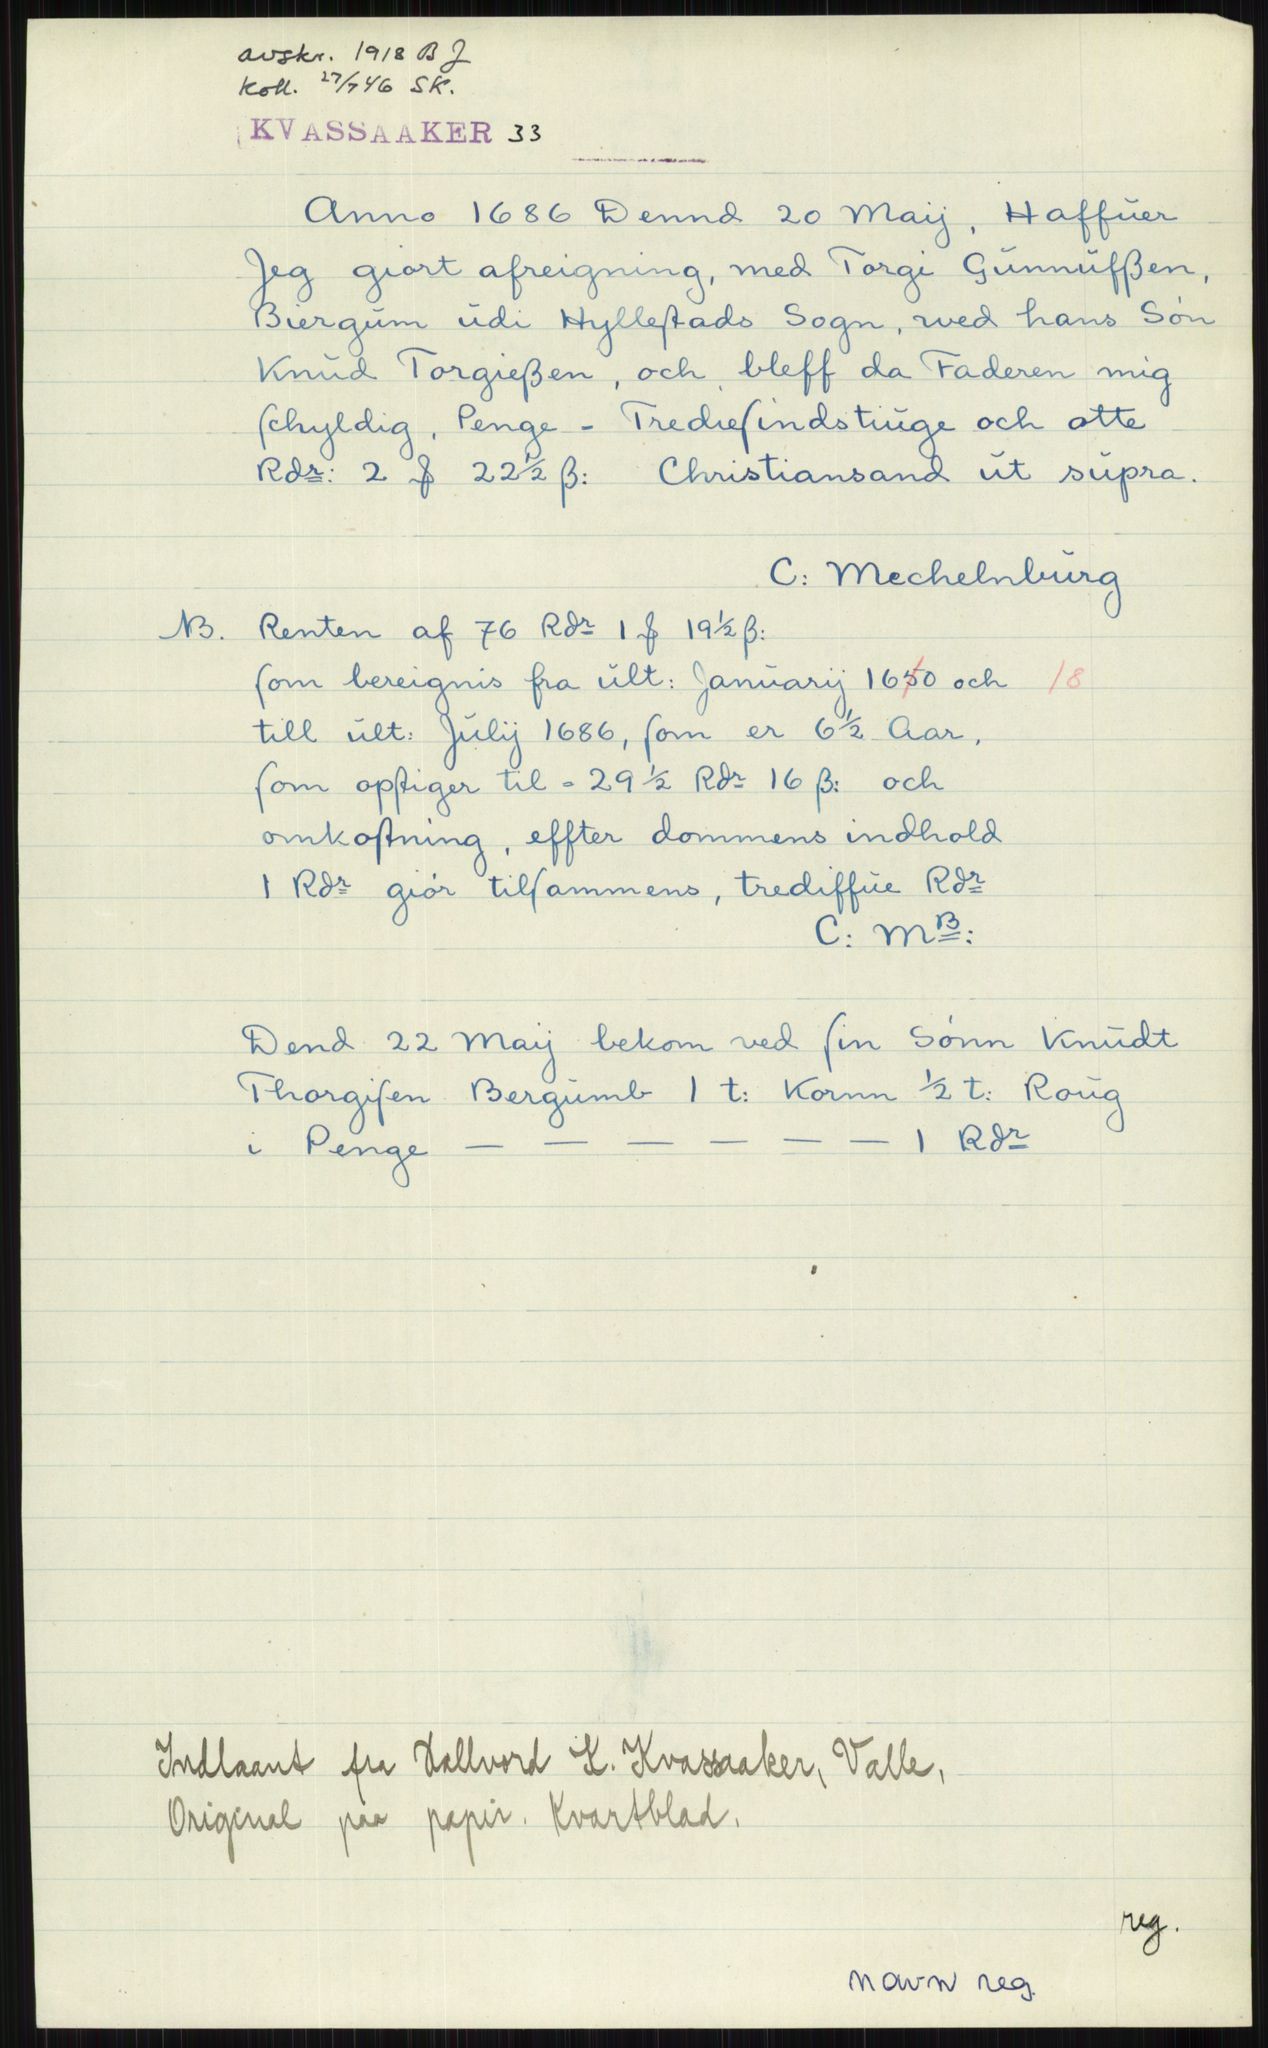 avskr. 1918 B J
Koll. 27/7 46 SK.
KVASSAAKER 33
Anno 1686 Dennd 20 Maij, Haffuer
Jeg giort afreigning, med Torgi Gunnufßen,
Biergum udi Hyllestads Sogn, wed hans Søn
Knud Torgießen, och bleff da Faderen mig
schyldig, Penge - Trediesindstiuge och otte
Rdr: 2 ₰ 22½ β: Christiansand ut supra.
C: Mechelnburg
NB. Renten af 76 Rdr 1 ₰ 19½ β:
som bereignis fra ult: Januarij 1650 och 18
till ult: Julij 1686, som er 6½ Aar,
som opstiger til - 29½ Rdr 16 β: och
omkostning, effter dommens indhold
1 Rdr giör tilsammens, trediffue Rdr
C: MB:
Dend 22 Maij bekom ved sin Sønn Knudt
Thorgisen Bergumb 1 t: Kornn ½ t: Roug
i Penge — — — — — — 1 Rdr
Indlaant fra Hallvord K. Kvassaaker, Valle,
Original paa papir. Kvartblad.
reg.
navn reg.